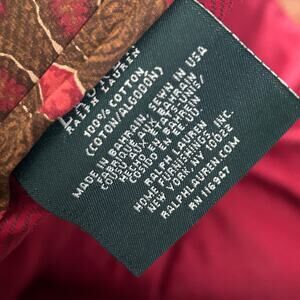 RALPH LAUREN
100% COTTON
(COTON/ALGODÓN)
MADE IN BAHRAIN, SEWN IN USA
FABRIQUE AU BAHREIN
COUSU AUX ETATS-UNIS/
HECHO EN BAHREIN
COSIDO EN EE UU
RALPH LAUREN
HOME FURNISHINGS, INC.
NEW YORK, NY 10022
RALPHLAUREN.COM
RN 116947